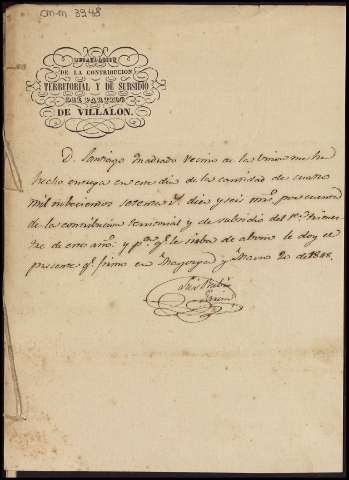 CM-M 3248
RECAUDACION
DE LA CONTRIBUCION
TERRITORIAL Y DE SUBSIDIO
DEL PARTIDO
DE VILLALON.
D. Santiago Madrado Vecino de la Union me ha
hecho entrega en este dia de la cantidad de cuatro
mil nobecientos setenta y diez y seis mrs. por cuenta
de la contribucion territorial y de subsidio del 1er. trimes
tre de este año. y pa. qe. le sirba de abono le doy el
presente qe. firmo en Mayorga y Marzo 20 de 1848.
Luis